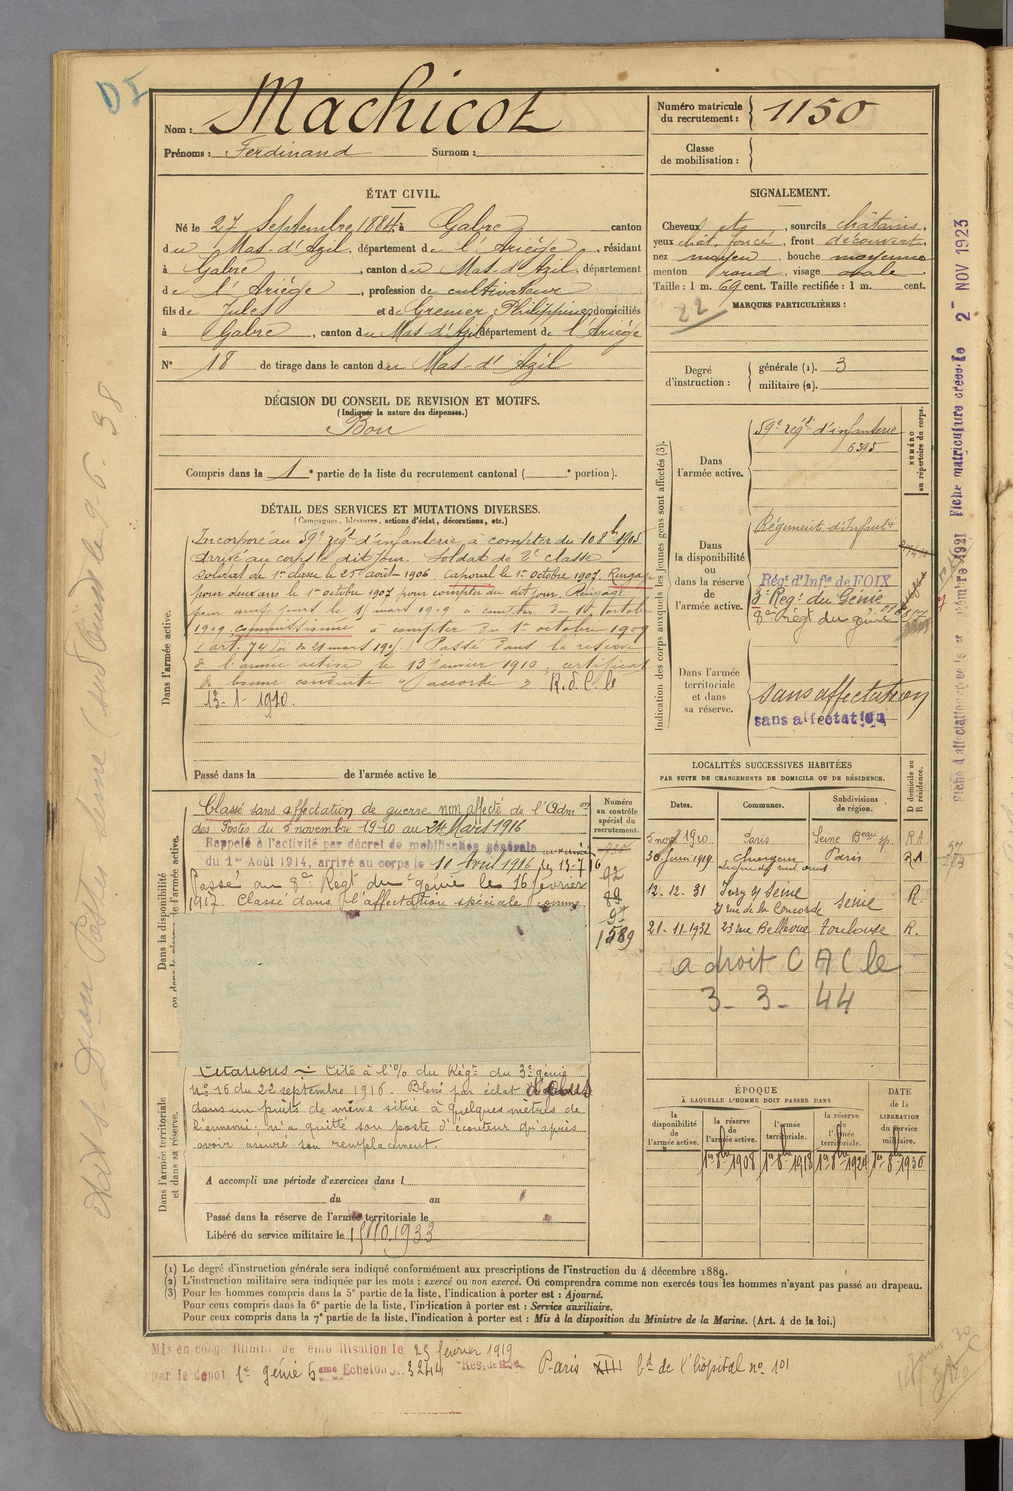 DI
Nom : Machicot
Prénoms : Ferdinand Surnom :
Numéro matricule du recrutement : 1150
Classe de mobilisation :
ÉTAT CIVIL.
Né le 27 Septembre 1884, à Gabre canton
du Mas-d'Azil, département de l'Ariége, résidant
à Gabre, canton du Mas-d'Azil, département
de l'Ariége, profession de cultivateur
fils de Jules et de Grenier Philippine, domiciliés
à Gabre, canton du Mas d'Azil département de l'Ariége
N° 18 de tirage dans le canton du Mas-d'Azil
SIGNALEMENT.
Cheveux et, sourcils châtains,
yeux chât. foncé, front découvert,
nez moyen, bouche moyenne
menton rond, visage ovale
Taille : 1 m. 69 cent. Taille rectifiée : 1 m. cent.
22
MARQUES PARTICULIÈRES :
Degré d'instruction :
générale (1). 3
militaire (2).
DÉCISION DU CONSEIL DE REVISION ET MOTIFS.
(Indiquer la nature des dispenses.)
Bon
Compris dans la 1e partie de la liste du recrutement cantonal ( e portion).
DÉTAIL DES SERVICES ET MUTATIONS DIVERSES.
(Campagnes, blessures, actions d'éclat, décorations, etc.)
Dans l'armée active.
Incorporé au 59e régt d'infanterie à compter du 10 8bre 1905
arrivé au corps le dit jour. Soldat de 2e classe
soldat de 1e classe le 25 août 1906 caporal le 1er octobre 1907. Rengagé
pour deux ans le 1er octobre 1907 pour compter du dit jour. Rengagé
pour neuf jours le mars 1909 à compter du octobre
1909, commissionné à compter du 1er octobre 1909
(art. 74 loi du 21 mars 1905) Passé dans la réserve
de l'armée active le 13 janvier 1910. certificat
de bonne conduite accordé R.d.C. le
13-1-1910.
Passé dans la de l'armée active le
Indication des corps auxquels les jeunes gens sont affectés (3).
NUMÉRO au répertoire du corps.
Dans l'armée active.
59e régt d'infanterie
6395
Dans la disponibilité ou dans la réserve de l'armée active.
Régiment d'Infantie
Régt d'Infie de FOIX
3e Regt du Génie
8e régt du génie
Dans l'armée territoriale et dans sa réserve.
sans affectation
sans affectation
LOCALITÉS SUCCESSIVES HABITÉES
PAR SUITE DE CHANGEMENTS DE DOMICILE OU DE RÉSIDENCE.
Dates. Communes. Subdivisions de région. D domicile ou R résidence.
5 novbre 1910 Paris Seine Beau sp. R
30 Juin 1919 Paris R
12.12.31 Ivry s/ Seine
21 rue de la Concorde Seine R.
21-11-1932 23 rue Bellevue Toulouse R.
a droit C A C le
3-3-44
Dans la disponibilité ou dans la réserve de l'armée active.
Numéro au contrôle spécial du recrutement.
Classé sans affectation de guerre non affecté de l'Adm on
des Postes du 5 novembre 1910 au 24 Mars 1916
Rappelé à l'activité par décret de mobilisation générale
du 1er Août 1914, arrivé au corps le 11 Avril 1916
Passé au 8e Regt du génie le 16 février
1917. Classé dans l'affectation spéciale comme
92
89
97
1589
Dans l'armée territoriale et dans sa réserve.
Citations – Cité à l'O/ du Régt du 3e génie
No 16 du 22 septembre 1916. Blessé par éclat
dans un puits de mine situé à quelques mètres de
l'ennemi; n'a quitté son poste d'écouteur qu'après
avoir assuré son remplacement.
A accompli une période d'exercices dans l
du au
Passé dans la réserve de l'armée territoriale le
Libéré du service militaire le 15.10.1933
ÉPOQUE
À LAQUELLE L'HOMME DOIT PASSER DANS
la disponibilité de l'armée active. la réserve de l'armée active. l'armée territoriale. la réserve de l'armée territoriale.
DATE de la LIBÉRATION du service militaire.
1er 8bre 1908 1er 8bre 1918 1er 8bre 1924 1er 8bre 1930
(1) Le degré d'instruction générale sera indiqué conformément aux prescriptions de l'instruction du 4 décembre 1889.
(2) L'instruction militaire sera indiquée par les mots : exercé ou non exercé. On comprendra comme non exercés tous les hommes n'ayant pas passé au drapeau.
(3) Pour les hommes compris dans la 5e partie de la liste, l'indication à porter est : Ajourné.
Pour ceux compris dans la 6e partie de la liste, l'indication à porter est : Service auxiliaire.
Pour ceux compris dans la 7e partie de la liste, l'indication à porter est : Mis à la disposition du Ministre de la Marine. (Art. 4 de la loi.)
Mis en congé illimité de démobilisation le 23 février 1919
par le dépôt 1er génie 5eme Echelon No 3244 Paris XIII bd de l'hôpital no 101
Fiche matriculaire créée le 2 - NOV 1923